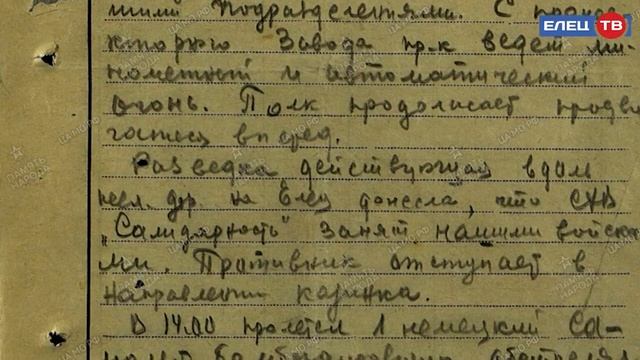 ЕЛЕЦ ТВ
шими подразделениями. С
Завода пр-к ведет ми-
нометный и автоматический
огонь. Полк продолжает продви
гаться вперед.
Разведка, действующая вдоль
жел. дор. на Елец донесла, что СХВ
"Салидарность" занят нашими войска
ми. Противник отступает в
направлении казинка.
В 14.00 пролетел 1 немецкий са-